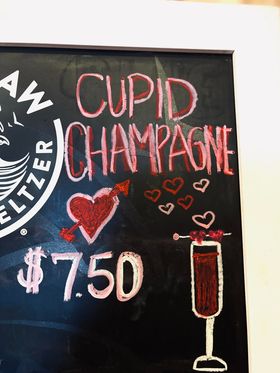 CUPID
CHAMPAGNE
$7.50
AW
ELTZER